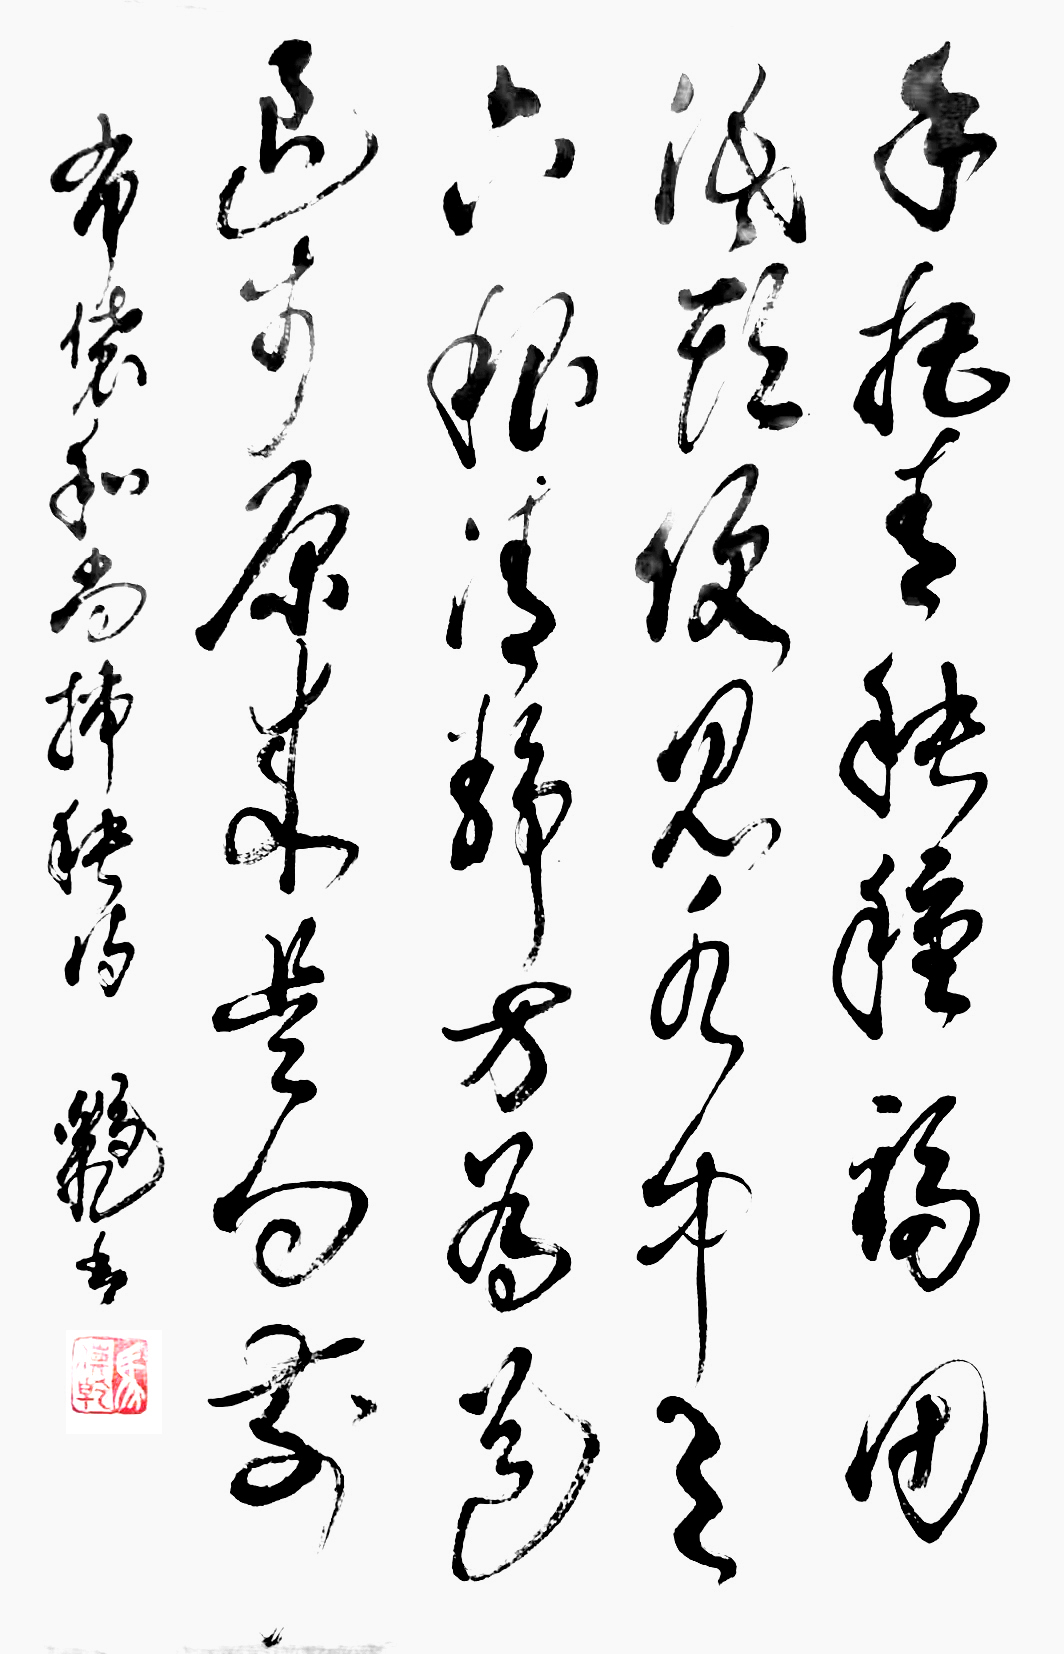 手把青秧種福田
低頭便見水中天
六根清靜方為道
退步原來是向前
布袋和尚插秧詩 書